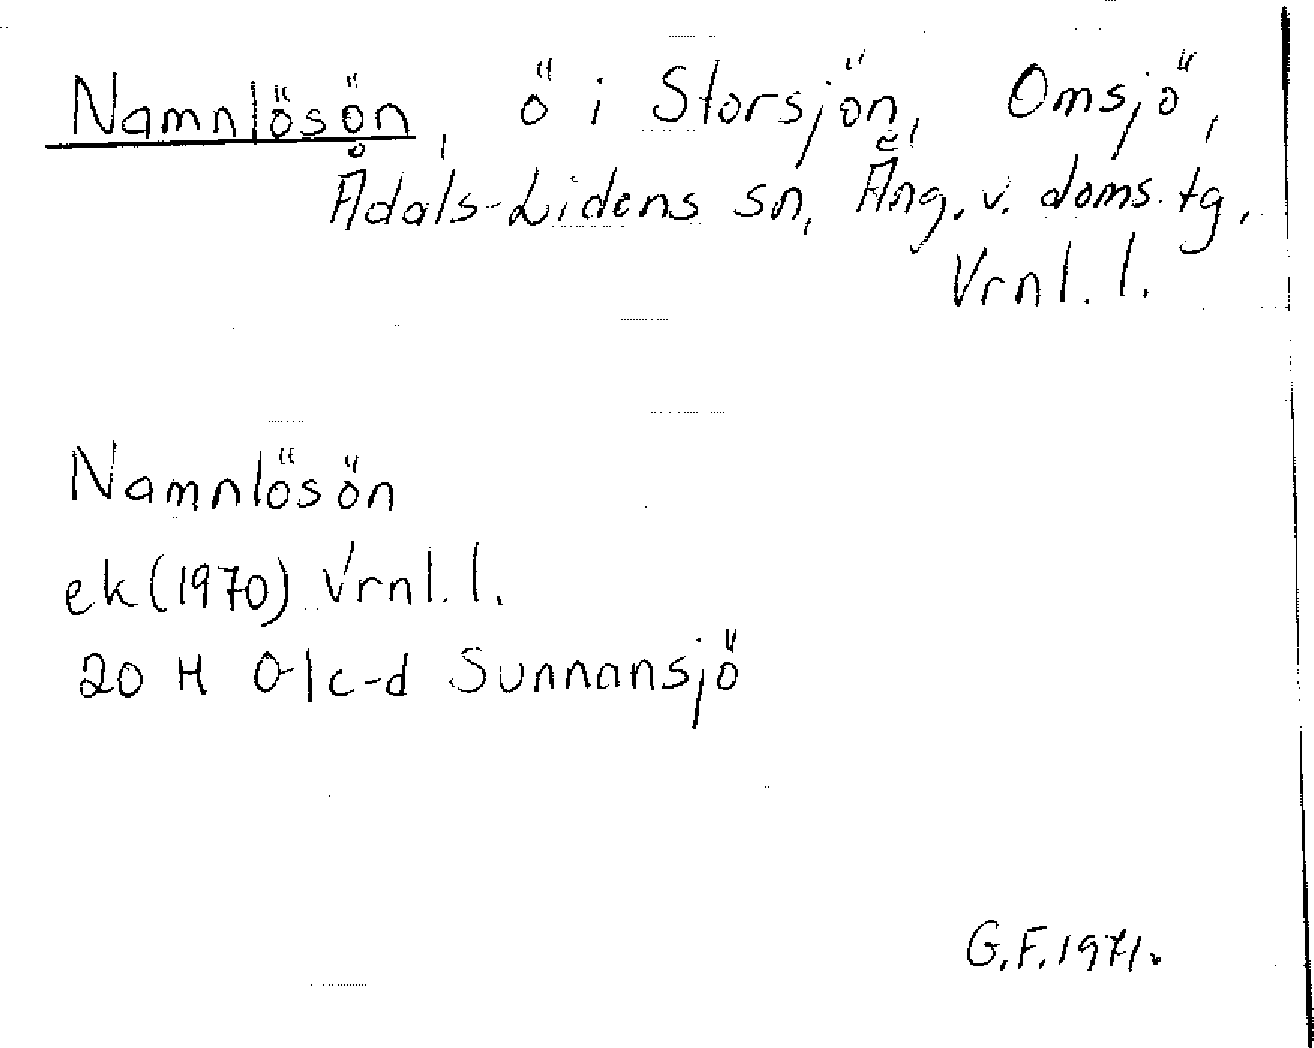 Namnlösön, ö i Storsjön, Omsjö,
Ådals-Lidens sn, Äng. v. doms. tg,
Vrnl. l.
Namnlösön
ek (1970) Vrnl. l.
20 H 0-1 c-d Sunnansjö
G.F. 1971.